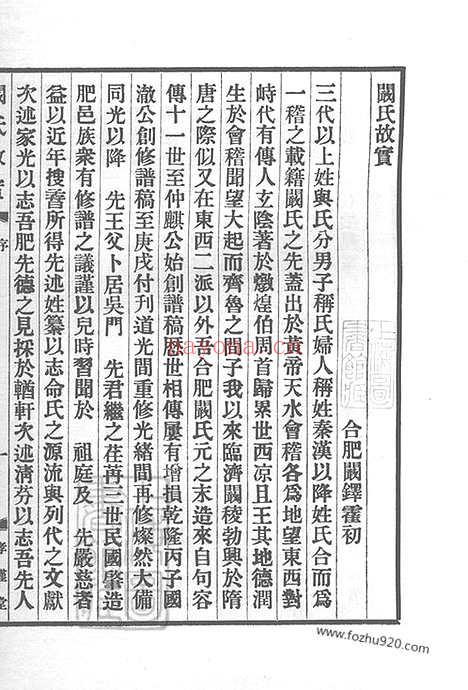 闞氏故實
合肥闞鐸霍初
三代以上姓與氏分男子稱氏婦人稱姓秦漢以降姓氏合而爲
一稽之載籍闞氏之先蓋出於黃帝天水會稽各爲地望東西對
峙代有傳人玄陰著於燉煌伯周首歸累世西凉且王其地德潤
生於會稽聞望大起而齊魯之間子我以來臨濟闞稜勃興於隋
唐之際似又在東西二派以外吾合肥闞氏元之末造來自句容
傳十一世至仲麒公始創譜稿厯世相傳屢有增損乾隆丙子國
澈公創修譜稿至庚戌付刊道光間重修光緒間再修燦然大備
同光以降 先王父卜居吳門 先君繼之荏苒三世民國肇造
肥邑族衆有修譜之議謹以兒時習聞於 祖庭及 先嚴慈者
益以近年搜香所得先述姓纂以志命氏之源流與列代之文獻
次述家光以志吾肥先德之見採於輶軒次述清芬以志吾先人
闞氏故實 序 一
www.fozhu920.com
nayona.cn